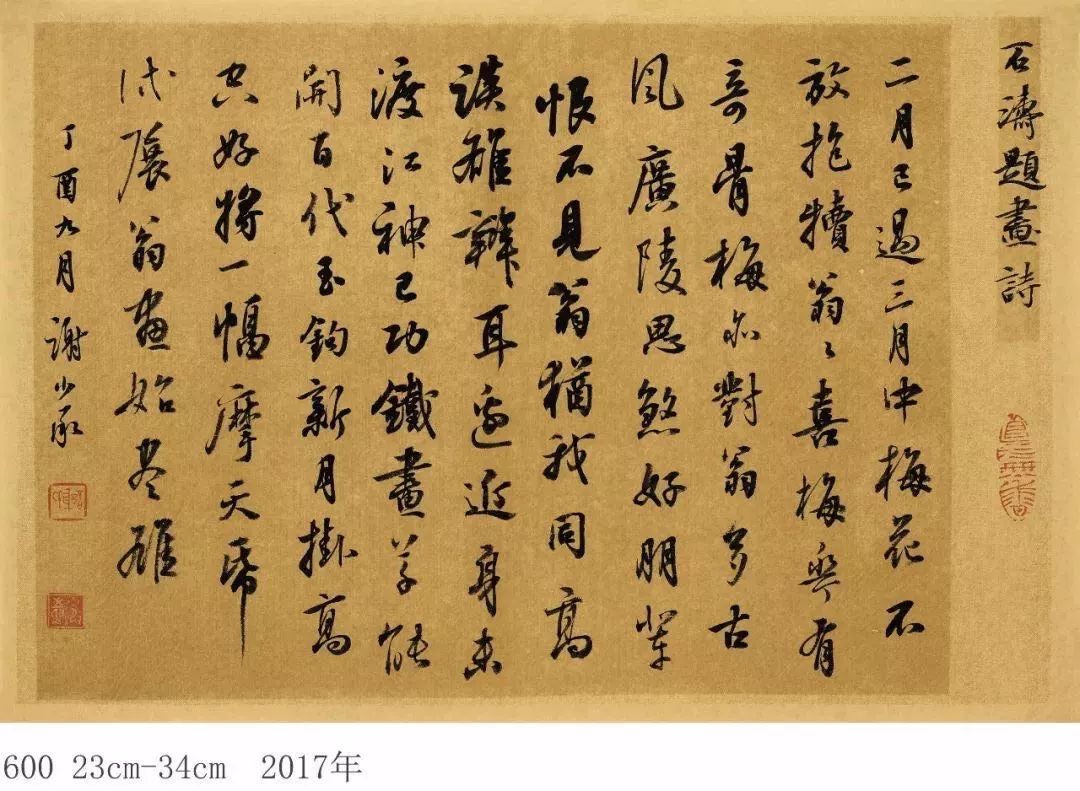 石濤題畫詩
二月已過三月中梅花不
放抱犢翁々喜梅與有
奇骨梅亦對翁多古
風廣陵思煞好朋輩
恨不見翁猶我同高
談雄辯耳邊近身未
渡江神已功鐵畫能
開百代玉鉤新月掛高
空好將一幅摩天帋
展翁畫始盡雄
丁酉九月 謝少承
600 23cm-34cm 2017年